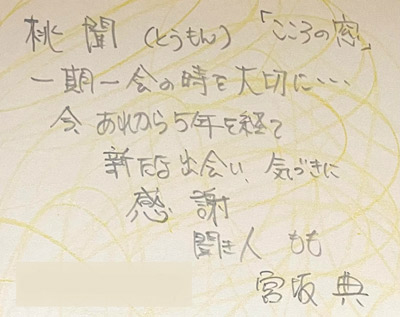 桃聞(とうもん)「こころの窓」
一期一会の時を大切に・・・
今、あれから5年を経て
新たな出会い、気づきに
感謝
聞き人 もも
宮坂 典